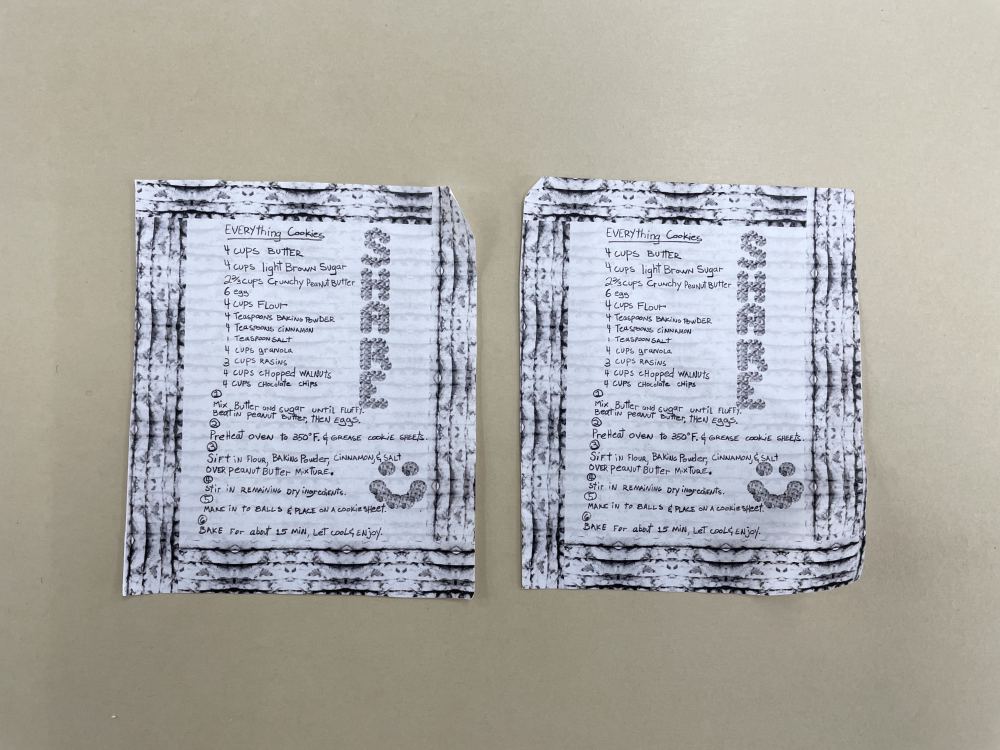 EVERYthing Cookies
4 CUPS BUTTER
4 CUPS light Brown Sugar
2 2/3 CUPS Crunchy Peanut Butter
6 egg
4 CUPS FLOUr
4 TEASPOONS BAKING POWDER
4 TEASPOONS CINNAMON
1 TEASPOON SALT
4 CUPS granola
3 CUPS RASINS
4 CUPS CHOPPED WALNUTS
4 CUPS Chocolate CHIPS
①
Mix Butter and sugar UNTIL FLUFFY.
Beat in peanut Butter, THEN EGGS.
②
PreHeat oven to 350°F. & GREASE cookie SHEETS.
③
SIFT in FLOUR, BAKING Powder, CINNAMON, & SALT
OVER peanut Butter MIXTURE.
④
Stir in REMAINING Dry ingredients.
⑤
MAKE IN to BALLS & PLACE ON A COOKIE SHEET.
⑥
BAKE For about 15 MIN, LET COOL & ENJOY.
SHARE
EVERYthing Cookies
4 CUPS BUTTER
4 CUPS light Brown Sugar
2 2/3 CUPS Crunchy Peanut Butter
6 egg
4 CUPS FLOUr
4 TEASPOONS BAKING POWDER
4 TEASPOONS CINNAMON
1 TEASPOON SALT
4 CUPS granola
3 CUPS RASINS
4 CUPS CHOPPED WALNUTS
4 CUPS Chocolate CHIPS
①
Mix Butter and sugar UNTIL FLUFFY.
Beat in peanut Butter, THEN EGGS.
②
PreHeat oven to 350°F. & GREASE cookie SHEETS.
③
SIFT in FLOUR, BAKING Powder, CINNAMON, & SALT
OVER peanut Butter MIXTURE.
④
Stir in REMAINING Dry ingredients.
⑤
MAKE IN to BALLS & PLACE ON A COOKIE SHEET.
⑥
BAKE For about 15 MIN, LET COOL & ENJOY.
SHARE